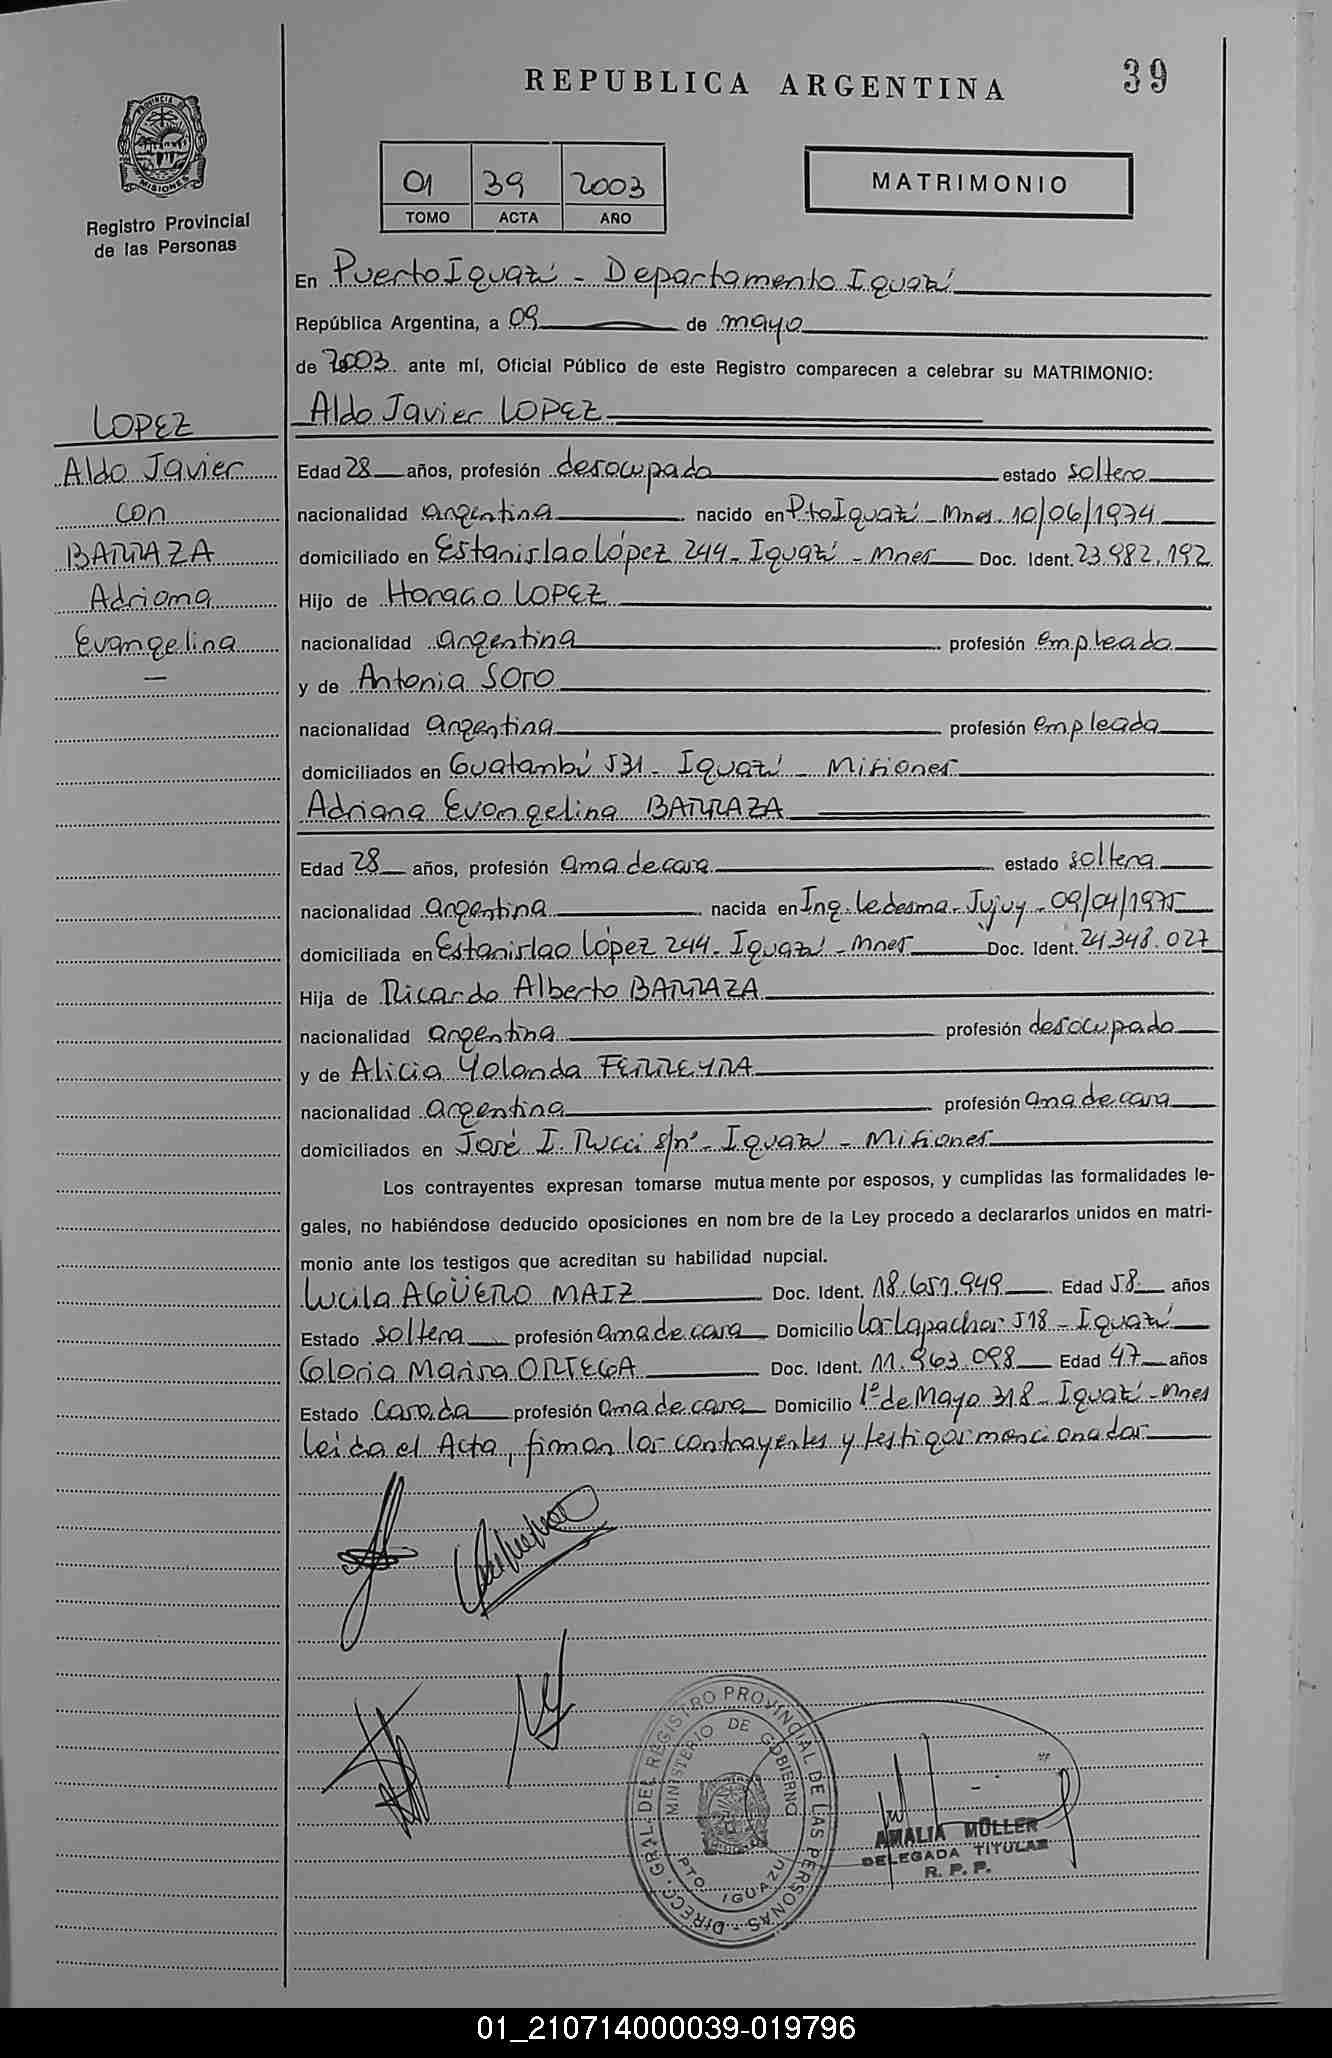 REPUBLICA ARGENTINA
39
PROVINCIA DE MISIONES
Registro Provincial
de las Personas
01 39 2003
TOMO ACTA AÑO
MATRIMONIO
En Puerto Iguazú - Departamento Iguazú
República Argentina, a 09 de mayo
de 2003 ante mí, Oficial Público de este Registro comparecen a celebrar su MATRIMONIO:
LOPEZ
Aldo Javier
con
BARRAZA
Adriana
Evangelina
Aldo Javier LOPEZ
Edad 28 años, profesión desocupado estado soltero
nacionalidad argentina nacido en Pto Iguazú - Mnes. 10/06/1974
domiciliado en Estanislao López 244 - Iguazú - Mnes Doc. Ident. 23.982.192
Hijo de Horacio LOPEZ
nacionalidad argentina profesión empleado
y de Antonia SOTO
nacionalidad argentina profesión empleada
domiciliados en Guatambú 531 - Iguazú - Misiones
Adriana Evangelina BARRAZA
Edad 28 años, profesión ama de casa estado soltera
nacionalidad argentina nacida en Ing. Ledesma - Jujuy - 09/04/1975
domiciliada en Estanislao López 244 - Iguazú - Mnes Doc. Ident. 24.348.027
Hija de Ricardo Alberto BARRAZA
nacionalidad argentina profesión desocupado
y de Alicia Yolanda FERREYRA
nacionalidad argentina profesión ama de casa
domiciliados en José I. Rucci s/nº - Iguazú - Misiones
Los contrayentes expresan tomarse mutua mente por esposos, y cumplidas las formalidades le-
gales, no habiéndose deducido oposiciones en nom bre de la Ley procedo a declararlos unidos en matri-
monio ante los testigos que acreditan su habilidad nupcial.
Lucila AGÜERO MAIZ Doc. Ident. 18.651.949 Edad 58 años
Estado soltera profesión ama de casa Domicilio Los Lapachos 518 - Iguazú
Gloria Marisa ORTEGA Doc. Ident. 11.963.098 Edad 47 años
Estado casada profesión ama de casa Domicilio 1º de Mayo 318 - Iguazú - Mnes
Leida el Acta, firman los contrayentes y testigos mencionados
DIRECC. GRAL. DEL REGISTRO PROVINCIAL DE LAS PERSONAS -
MINISTERIO DE GOBIERNO
PTO. IGUAZU
AMALIA MÜLLER
DELEGADA TITULAR
R. P. P.
01_210714000039-019796